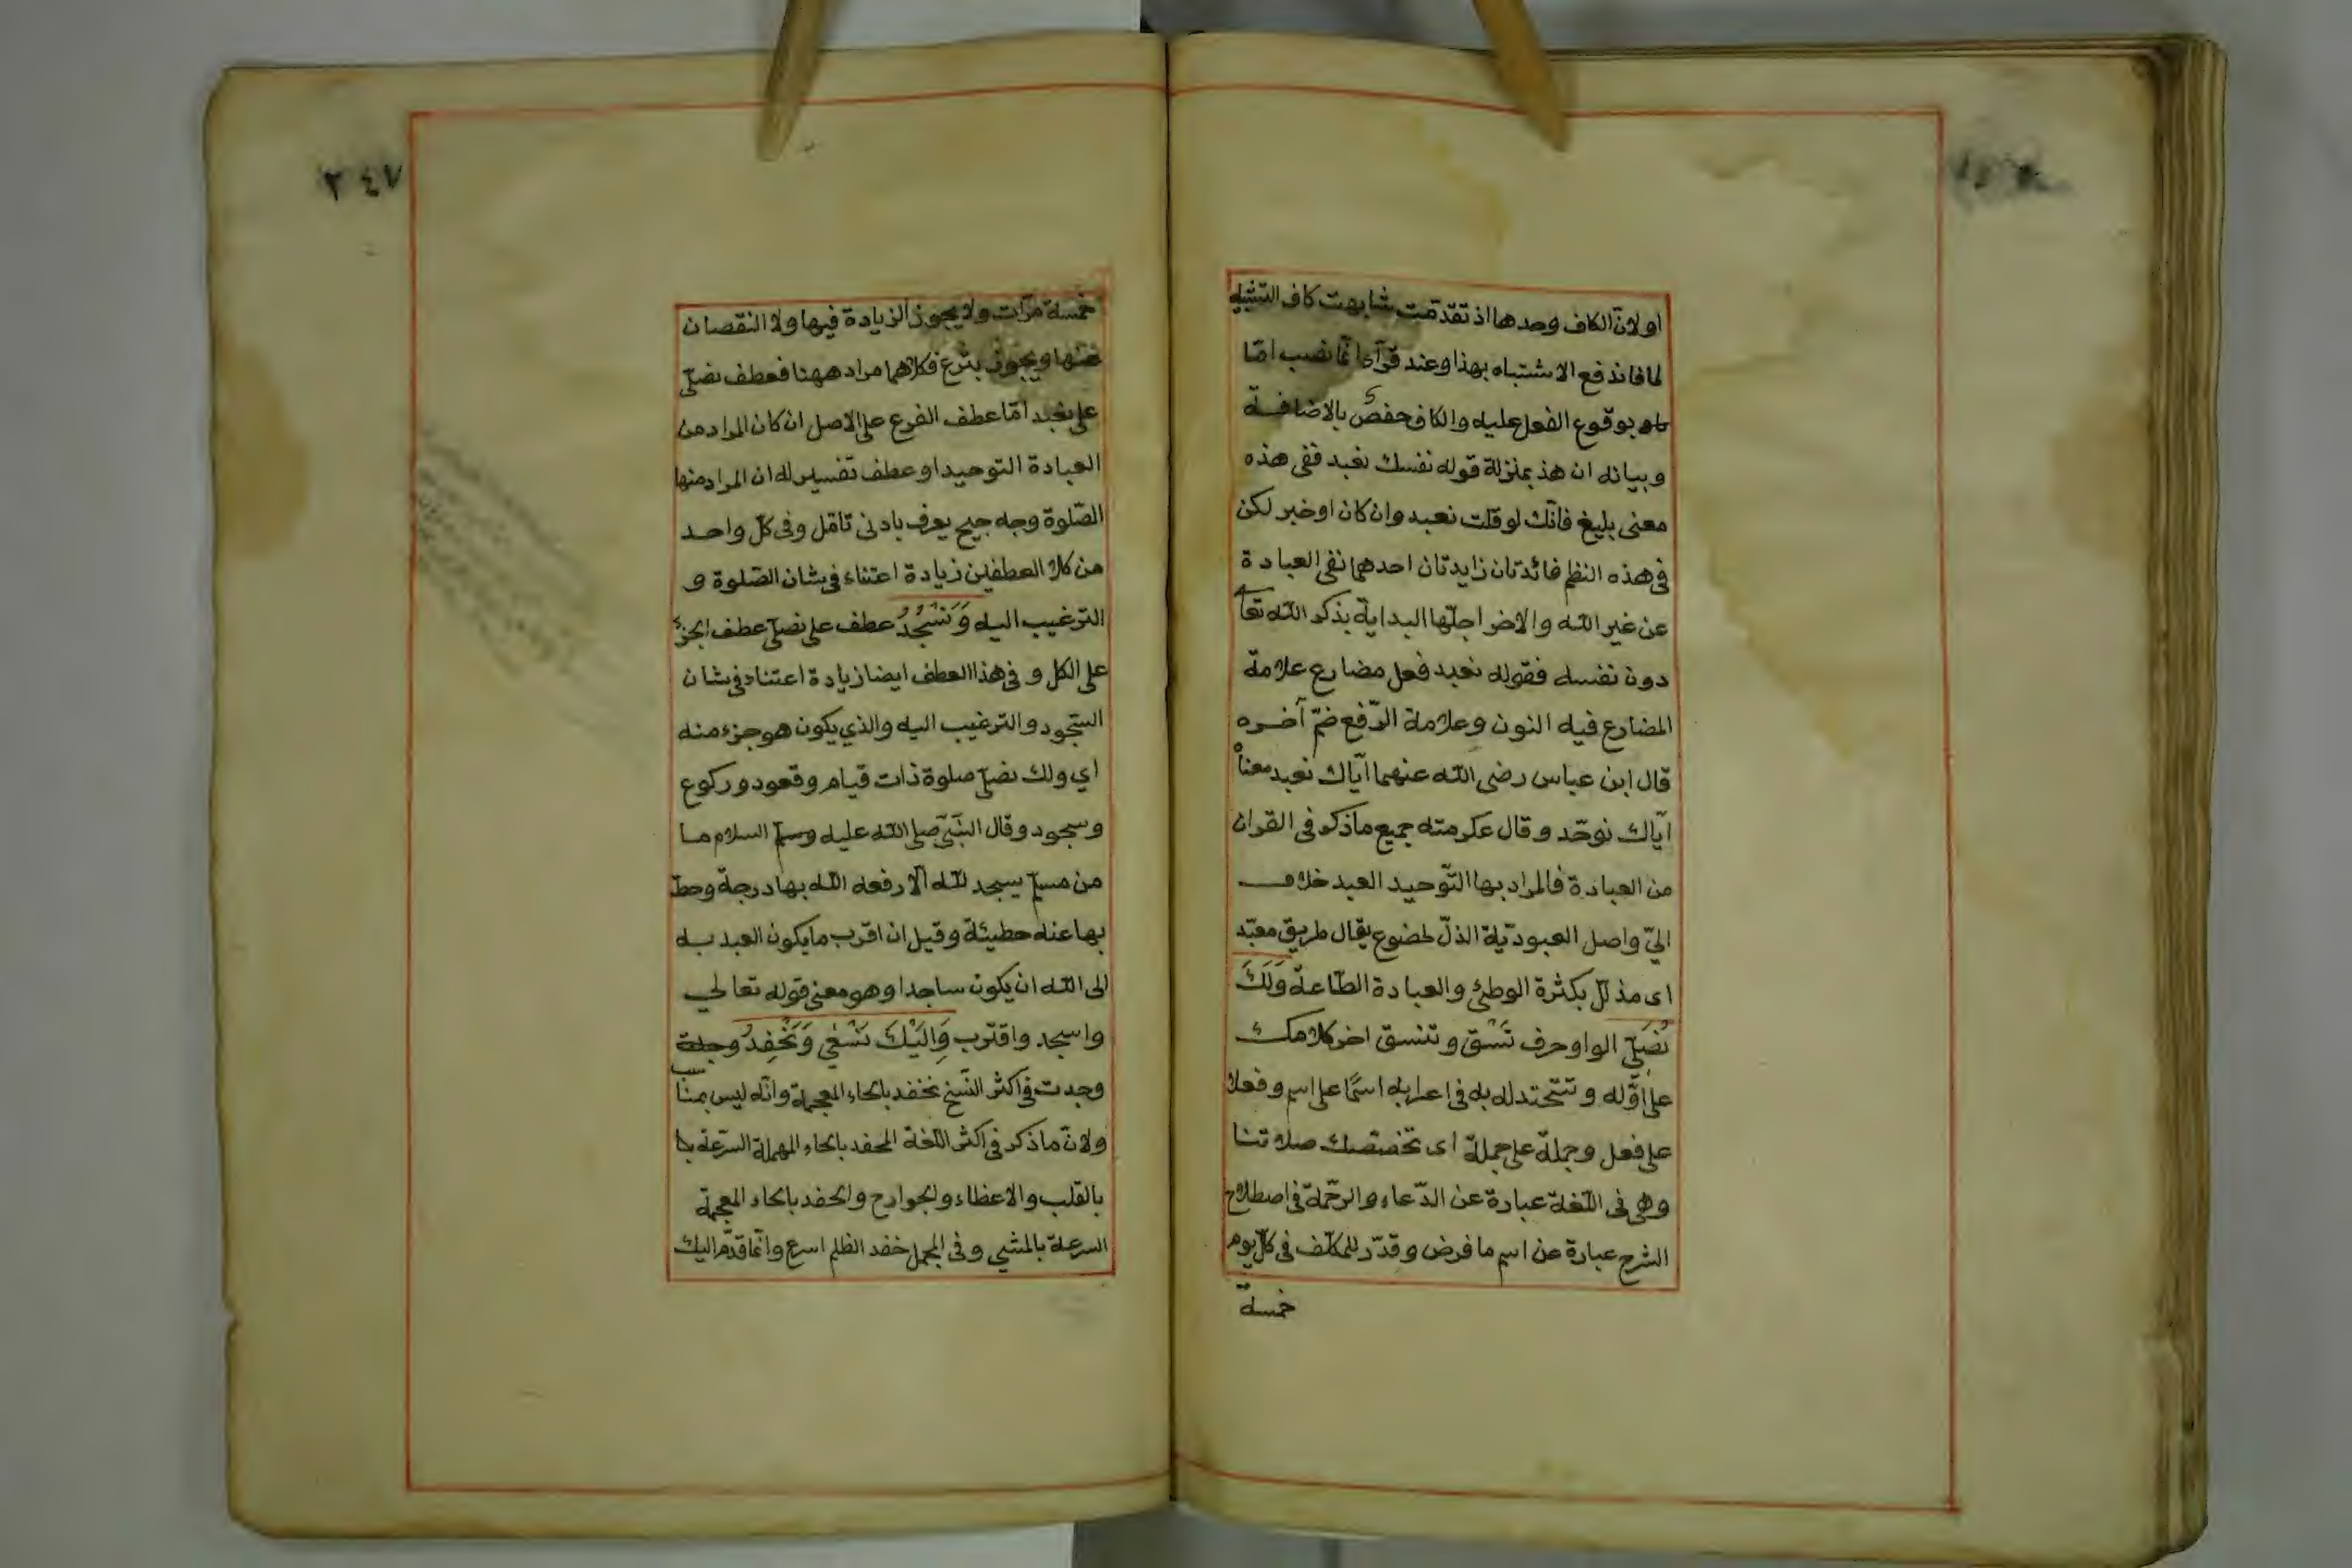 او لانّ الكاف وحدها اذ تقدّمت شابهت كاف التشبيه
لما فاندفع الاشتباه بهذا وعند قرآء انّما نصب امّا
بوقوع الفعل عليه والكاف حفص بالاضافة
وبيانه ان هذ بمنزلة قوله نفسك نعبد ففى هذه
معنى بليغ فانّك لو قلت نعبد وان كان اوخبر لكن
فى هذه النظم فائدتان زايدتان احدهما نفى العبادة
عن غير اللّه والاخر اجلّها البداية بذكر اللّه تعا
دون نفسه فقوله نعبد فعل مضارع علامة
المضارع فيه النون وعلامة الرّفع ضمّ آخره
قال ابن عباس رضى اللّه عنهما ايّاك نعبد معناْ
ايّاك نوحّد وقال عكرمته جميع ماذكر فى القران
من العبادة فالمراد بها التّوحيد العبد خلاف
اليّ واصل العبوديّة الذلّ لخضوع يقال طريق معبّد
اى مذ لّل بكثرة الوطئ والعبادة الطّاعة وَلَكَ
نُصَلّي الواو حرف نَسْق وتنسق اخر كلامك
على اوّله وتتحتد له به فى اعرابه اسمًا على اسم وفعلا
على فعل وجملة على جملة اى تخصّصك صلاتنا
وهى فى اللّغة عبارة عن الدّعاء والرحّمة فى اصطلاح
الشرح عبارة عن اسم ما فرض وقدّر للمكلّف فى كلّ يوم
خمسة
٢٤٧
خمسة مرّات ولا يجوز الزيادة فيها ولا النقصان
عنها ويجوز بتّرع فكلاهما مراد ههنا فعطف نصلّى
على نعبد امّا عطف الفرع على الاصل ان كان المراد من
العبادة التوحيد او عطف تفسير له ان المراد منها
الصّلوة وجه جيح يعرف بادنى تاقل وفى كلّ واحد
من كلا العطفين زيادة اعتناء فى شان الصّلوة و
الترغيب اليه وَنَسْجُدُ عطف على نصلّى عطف الجزء
على الكل و فى هذا العطف ايضا زيادة اعتناء فى شان
السّجود والترغيب اليه والذي يكون هو جزء منه
اي ولك نصلّى صلوة ذات قيام وقعود وركوع
وسجود وقال النّبىّ صلى اللّه عليه وسلم السلام ما
من مسلم يسجد للّه الّا رفعه اللّه بها درجة وحطّ
بها عنه حطيئة وقيل ان اقرب ما يكون العبد به
الى اللّه ان يكون ساجدا وهو معنى قوله تعالي
واسجد واقترب وَاِلَيْكَ نَسْعٰى وَنَحْفِدُ وجلة
وجدت فى اكثر النّسخ نخفد بالخاء المعجمة وانّه ليس بمنا
ولانّ ماذكر فى اكثر اللّغة الحفد بالحاء المهملة السّرعة
بالقلب والاعظاء والجوارح والخفد بالخاء المعجمة
السرعة بالمشي وفى المجمل خفد الظلم اسرع وانّما قدّم اليك